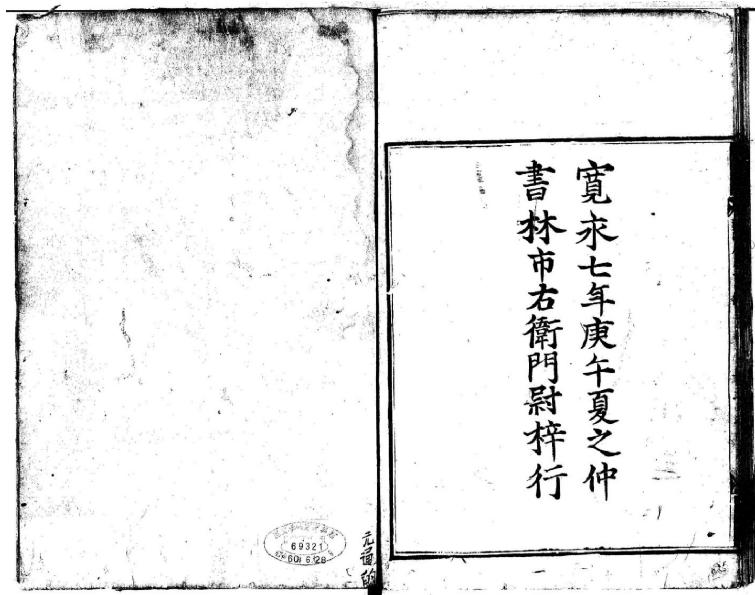 寛永七年庚午夏之仲
書林市右衛門尉梓行
69321
60 6.28